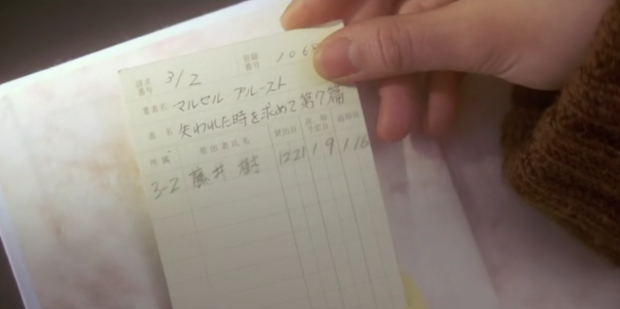 請求番号 312 登録番号 106
著者名 マルセル プルースト
書名 失われた時を求めて第7篇
所属 貸出者氏名 貸出日 返却予定日 返却日
3-2 藤井 樹 1221 19 116